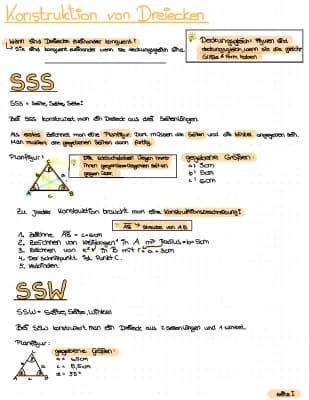 Konstruktion von Dreiecken
Wann sind Dreiecke zueinander kongruent?
Sie sind kongruent zueinander wenn sie deckungsgleich sind.
Deckungsgleich: Figuren sind
deckungsgleich, wenn sie die gleiche
Größe & Form haben.
SSS
SSS = Seite, Seite, Seite!
Bei SSS konstruiert man ein Dreieck aus drei Seitenlängen.
Als erstes zeichnet man eine Planfigur. Dort müssen die Seiten und die Winkel angegeben sein.
Man markiert die gegebenen Seiten dann farbig.
Planfigur:
Die Eckpunkte liegen immer
ihren gegenüberliegenden Seiten
gegenüber.
gegebene Größen:
a: 3cm
b: 5cm
c: 6cm
Zu jeder Konstruktion braucht man eine Konstruktionsbeschreibung!
AB → Strecke von AB
1. Zeichne AB = c = 6cm
2. Zeichnen von Kreisbogen in A mit Radius = b = 5cm
3. Zeichnen von in B mit r = a = 3cm
4. Der Schnittpunkt ist Punkt C.
5. Verbinden.
SSW
SSW = Seite, Seite, Winkel
Bei SSW konstruiert man ein Dreieck aus 2 Seitenlängen und 1 Winkel.
Planfigur:
gegebene Größen:
c = 5,5cm
α = 35°
Seite 1